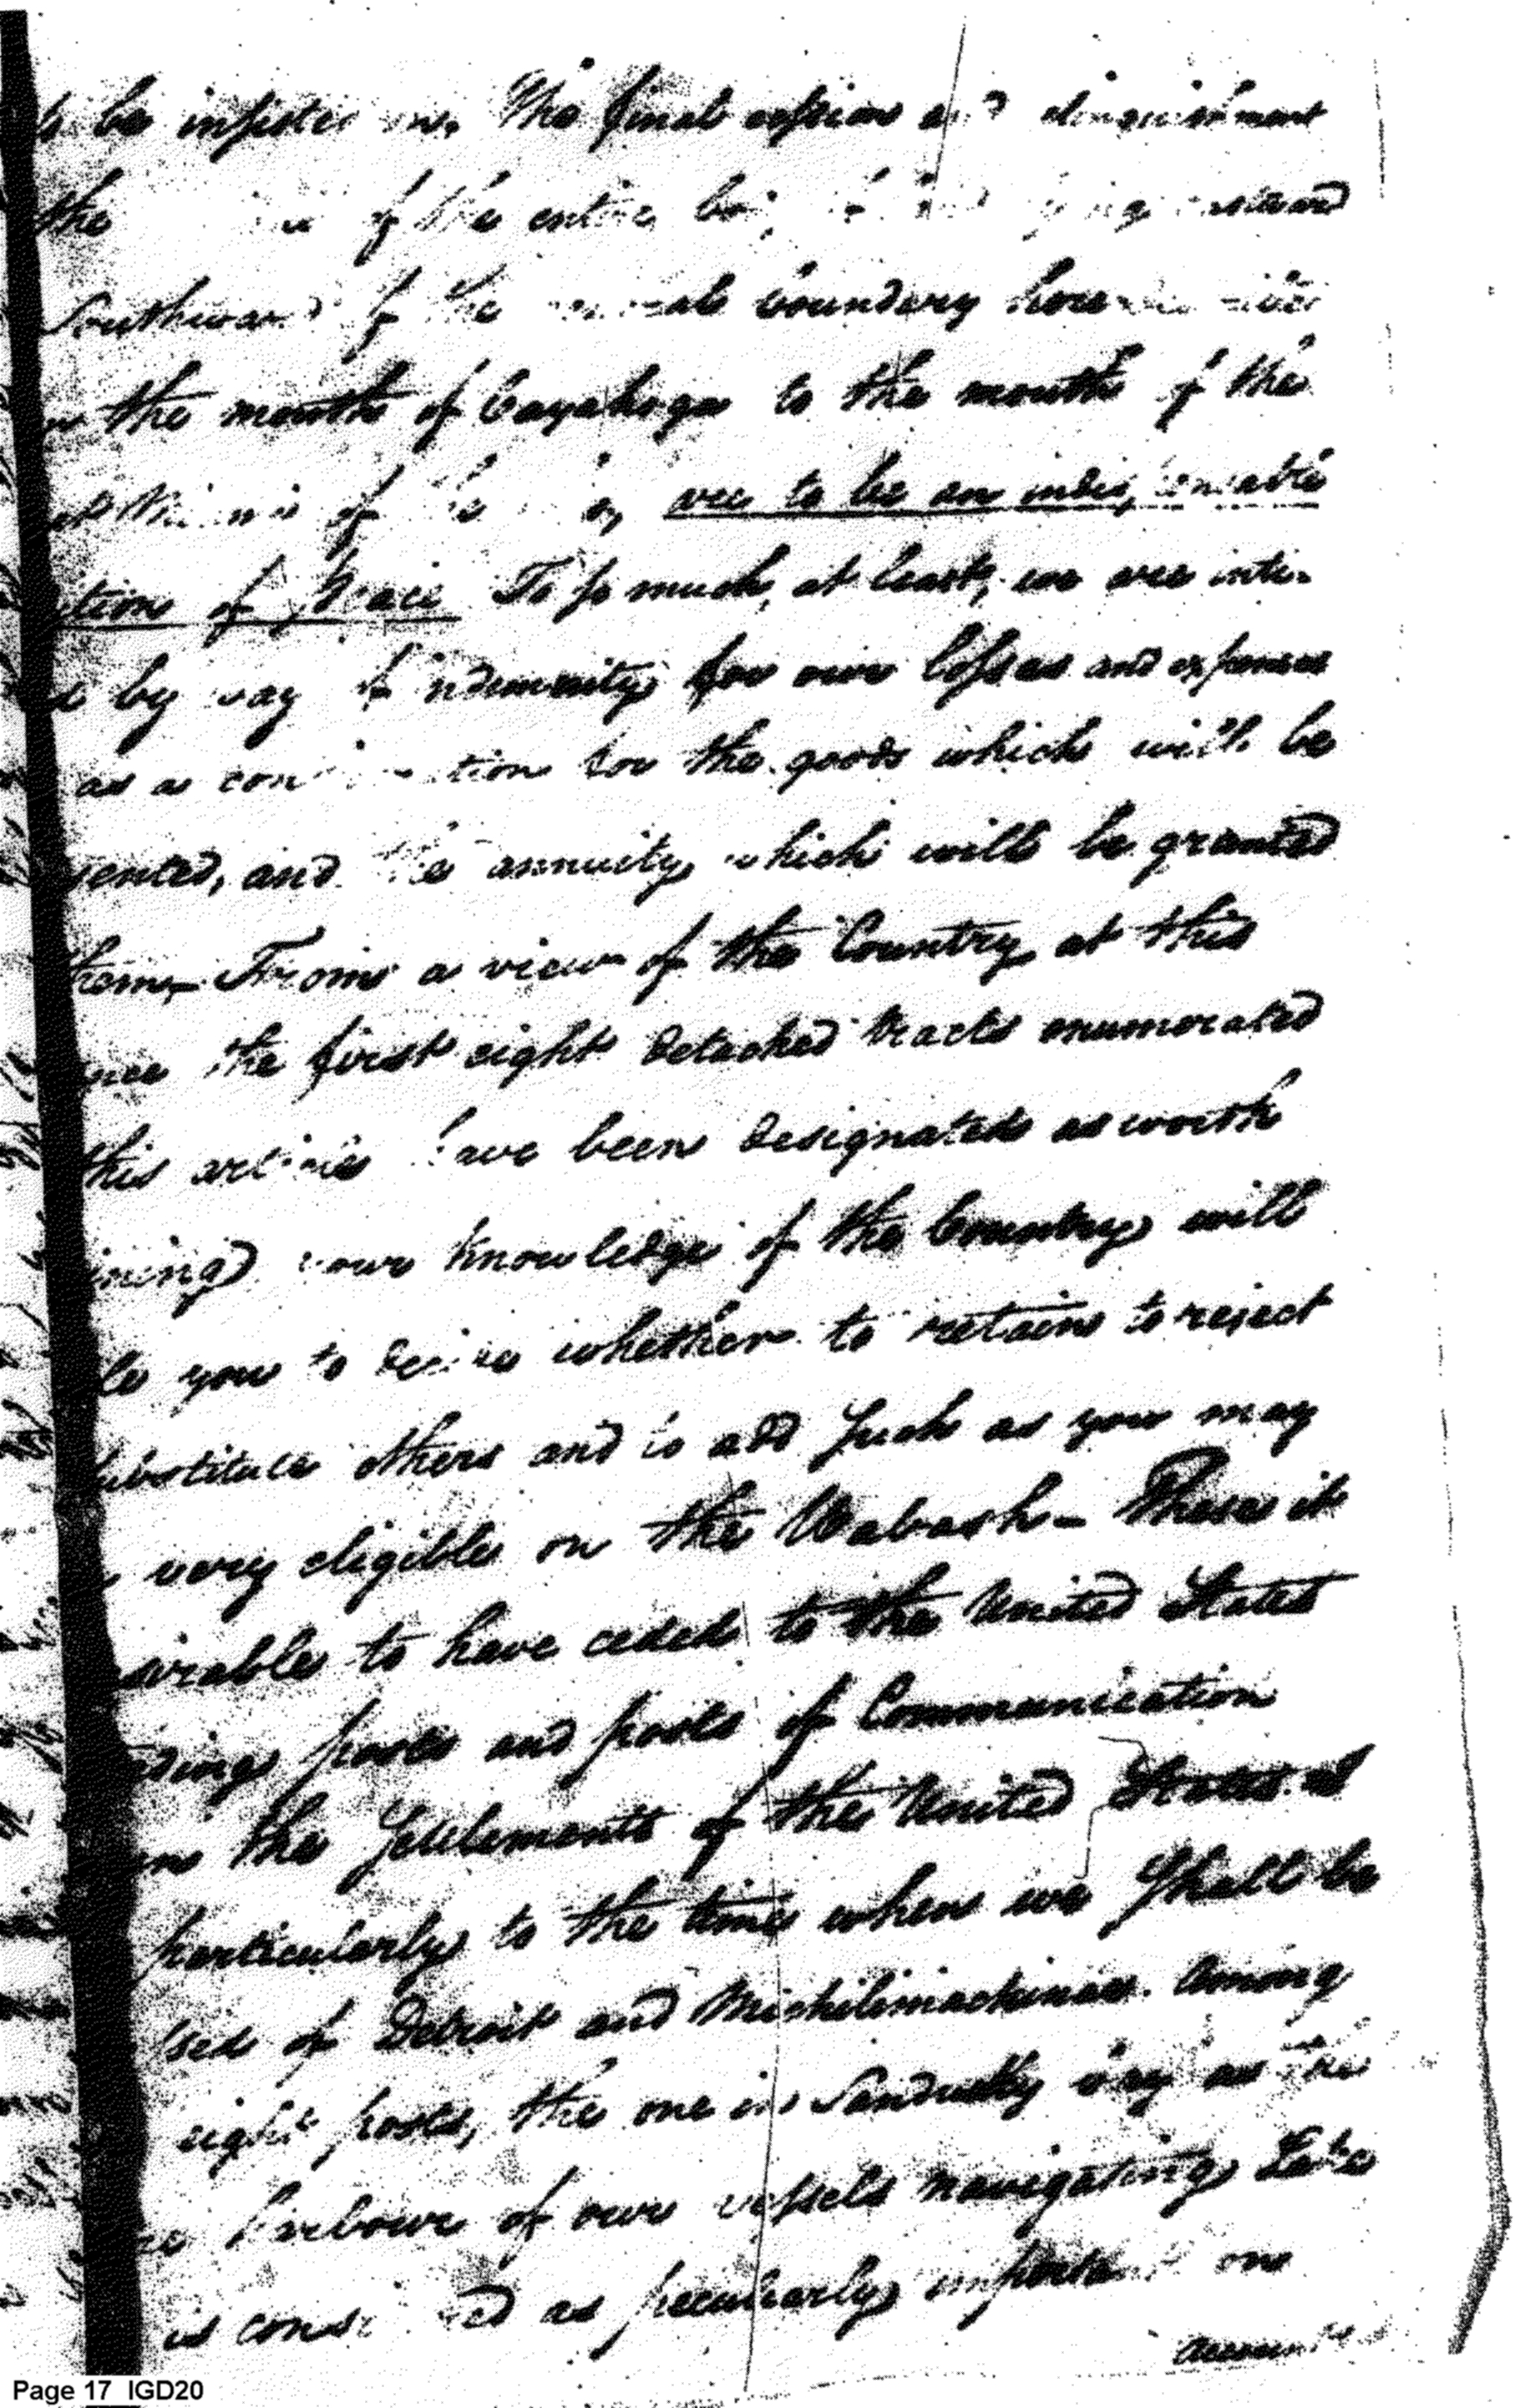 to be insisted on. The final cession and relinquishment
the of the entire body of land lying eastward
Southward of the general boundary here
the mouth of Cayahoga to the mouth of the
of are to be an indispensable
tion of peace To so much, at least, we are inti-
by way of indemnity for our losses and expenses
as a consideration for the goods which will be
sented, and the annuity which will be granted
them – From a view of the Country at this
the first eight detached tracts enumerated
this article have been designated as worth
ining your knowledge of the Country will
le you to decide whether to retain to reject
substitute others and to add such as you may
very eligible on the Wabash – These it
sirable to have ceded to the United States
ading posts and posts of Communication
en the Settlements of the United States as
particularly to the time when we shall be
sed of Detroit and Michilimackinac. Among
eight posts, the one in Sandusky bay as the
re harbour of our vessels navigating Lake
is considered as peculiarly important on
accounts
Page 17 IGD20